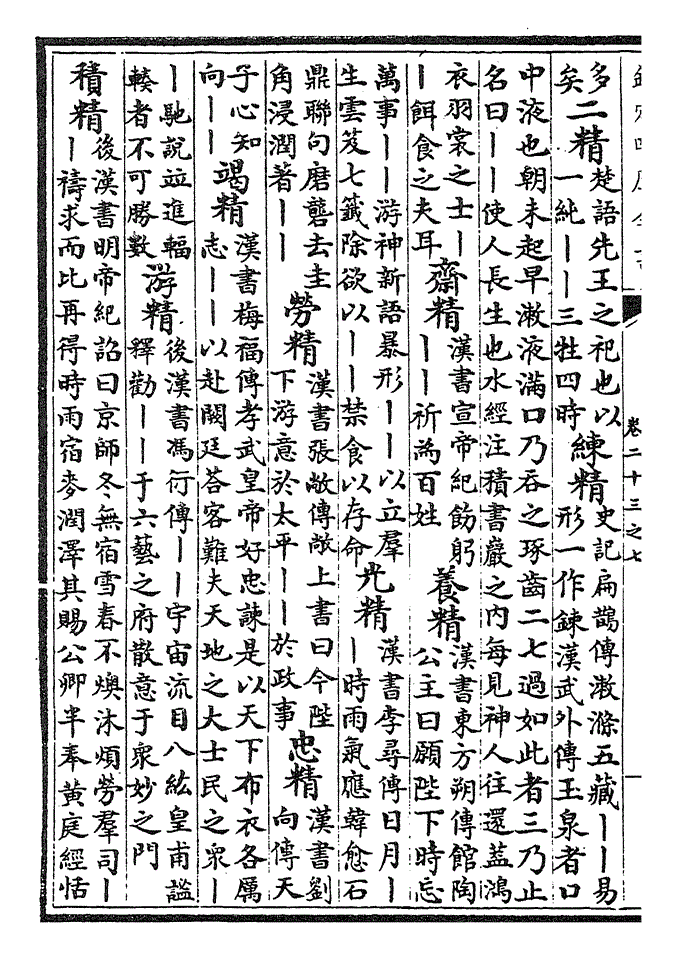 欽定四庫全書
卷二十三之七
多矣 二精 楚語先王之祀也以一純丨丨三牲四時 練精 史記扁鵲傳漱滌五藏丨丨易形一作鍊漢武外傳玉泉者口
中液也朝未起早漱液滿口乃吞之琢齒二七過如此者三乃止
名曰丨丨使人長生也水經注積書巖之内每見神人往還蓋鴻
衣羽裳之士丨丨餌食之夫耳 齋精 漢書宣帝紀飭躬丨丨祈為百姓 養精 漢書東方朔傳館陶公主曰願陛下時忘
萬事丨丨游神新語暴形丨丨以立羣生雲笈七籤除欲以丨丨禁食以存命 光精 漢書李尋傳日月丨丨時雨氣應韓愈石
鼎聯句磨礱去圭角浸潤著丨丨 勞精 漢書張敞傳敞上書曰今陛下游意於太平丨丨於政事 忠精 漢書劉向傳天
子心知向丨丨 竭精 漢書梅福傳孝武皇帝好忠諫是以天下布衣各厲志丨丨以赴闕廷荅客難夫天地之大士民之衆丨
丨馳說並進輻輳者不可勝數 游精 後漢書馮衍傳丨丨宇宙流目八紘皇甫謐釋勸丨丨于六藝之府散意于衆妙之門
積精 後漢書明帝紀詔曰京師冬無宿雪春不燠沐煩勞羣司丨丨禱求而比再得時雨宿麥潤澤其賜公卿半奉黄庭經恬